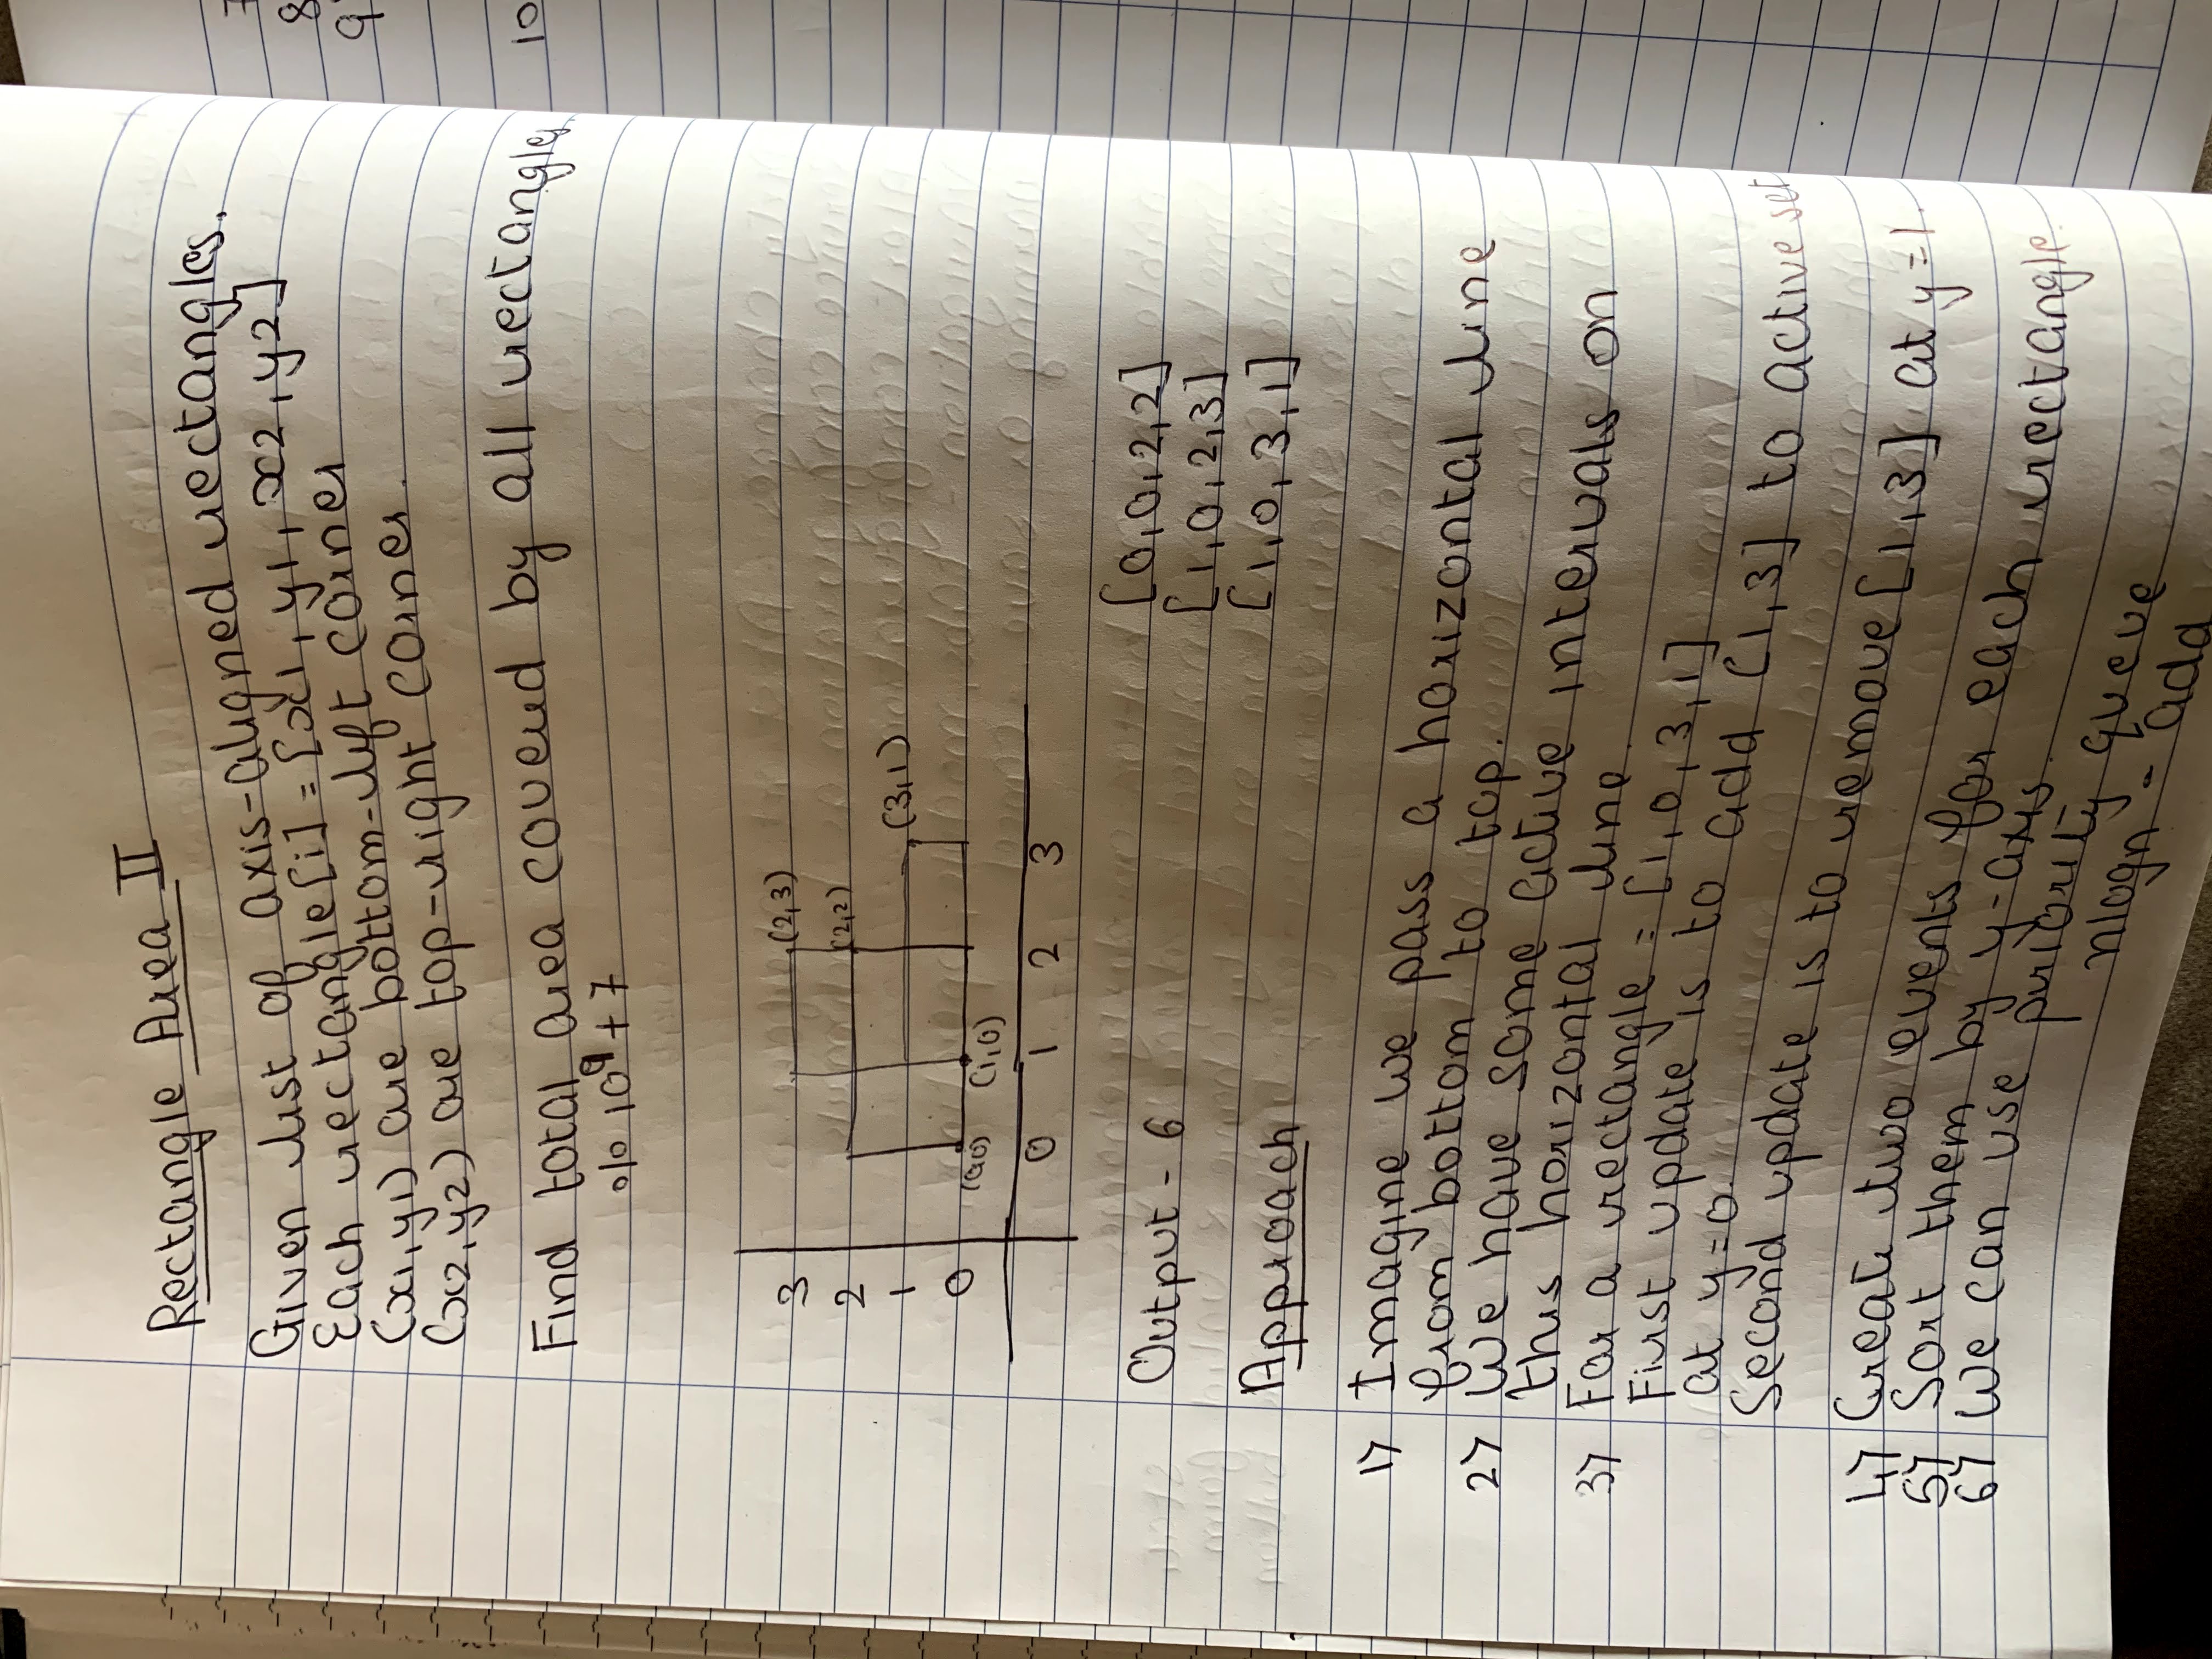 Rectangle Area II
Given list of axis-aligned rectangles.
Each rectangle[i] = [x1, y1, x2, y2]
(x1, y1) are bottom-left corner
(x2, y2) are top-right corner.
Find total area coverd by all rectangles
% 10^9 + 7
3
(2,3)
2
(2,2)
1
(3,1)
0
(0,0) (1,0)
0 1 2 3
Output - 6
[0,0,2,2]
[1,0,2,3]
[1,0,3,1]
Approach
1> Imagine we pass a horizontal line
from bottom to top.
2> We have some active intervals on
this horizontal line.
3> For a rectangle = [1,0,3,1]
First update is to add [1,3] to active set
at y=0.
Second update is to remove [1,3] at y=1.
4> Create two events for each rectangle.
5> Sort them by y-axis.
6> We can use priority queue
nlogn - add
7
8
9
10